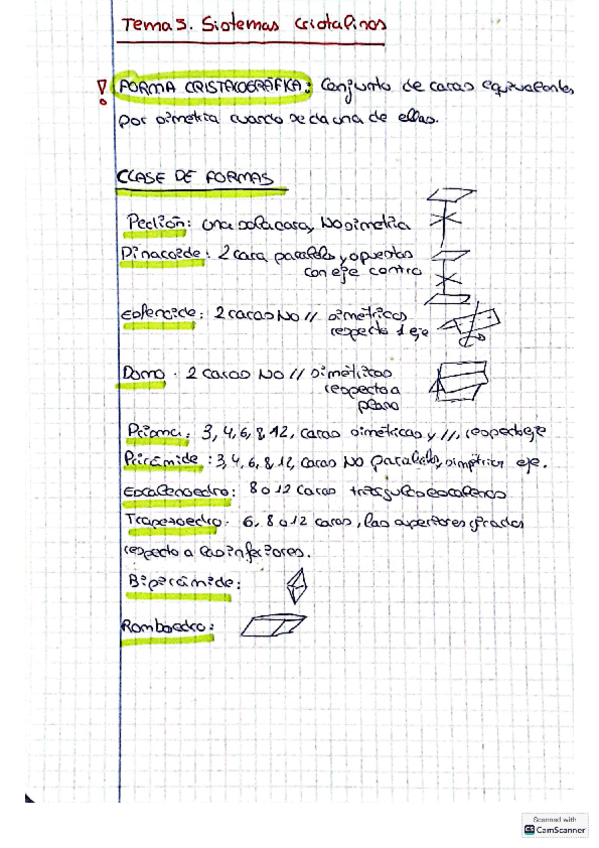 Tema 5. Sistemas Cristalinos
! FORMA CRISTALOGRÁFICA: Conjunto de caras equivalentes
por simetría cuando se da una de ellas.
CLASE DE FORMAS
Pedión: una sola cara, No simetría
Pinacoide: 2 cara paralela y opuestas
con eje centro
Esfenoide: 2 caras No // simétricas
respecto 1 eje
Domo: 2 caras No // simétricas
respecto a
plano
Prisma: 3, 4, 6, 8, 12, caras simétricas y //, respecto eje
Pirámide: 3, 4, 6, 8, 12, caras No paralelas, simétrica eje.
Escalenoedro: 8 o 12 caras triángulos escalenos
Trapezoedro: 6, 8 o 12 caras, las superiores giradas
respecto a las inferiores.
Bipirámide:
Romboedro:
Scanned with
CS CamScanner